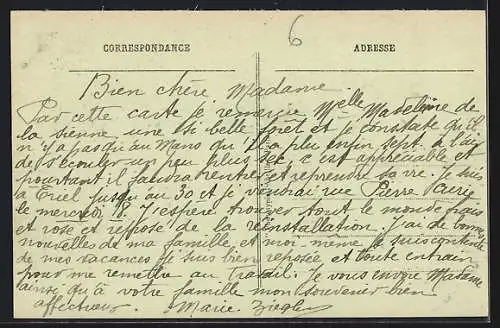 6
CORRESPONDANCE
ADRESSE
Bien chère Madame
Par cette carte je remercie Melle Madeleine de
la sienne une si belle forêt et je constate qu'il
n'y a pas qu'au Mans qu'il a plu enfin sept. a l'air
de s'écouler un peu plus sec c'est appréciable et
pourtant il faudra rentrer et reprendre sa vie. Je suis
à Triel jusqu'au 30 et je viendrai rue Pierre Curie
le mercredi 8. J'espère trouver tout le monde frais
et rose et reposé de la réinstallation J'ai de bonnes
nouvelles de ma famille et moi-même je suis contente
de mes vacances je suis bien reposée et toute entrain
pour me remettre au travail. Je vous envoie Madame
ainsi qu'à votre famille mon souvenir bien
affectueux. Marie Ziegler